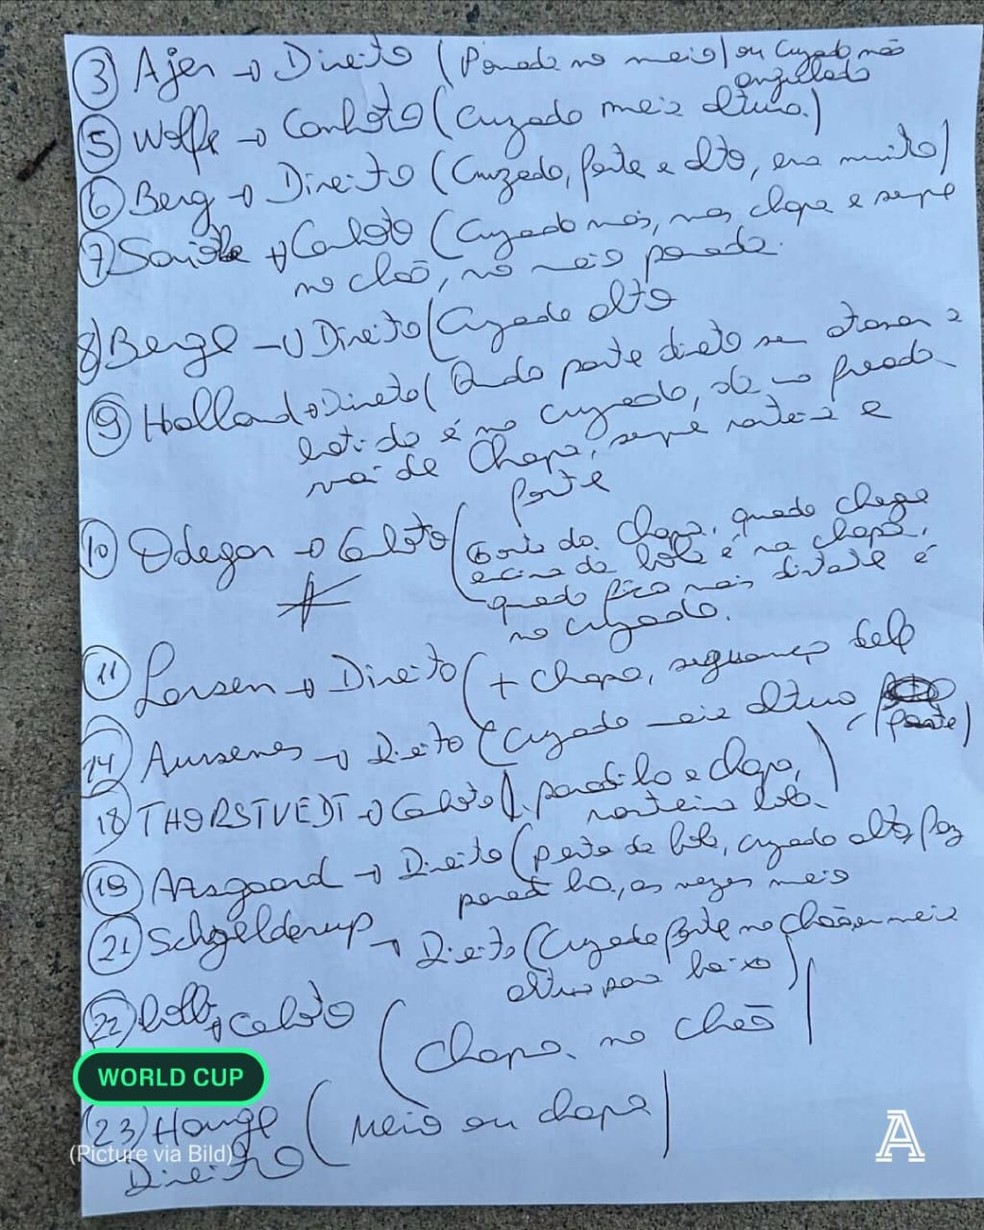 3 Ajer → Direito (Parada no meio) ou cruzado não
angulado
5 Wolfe → Canhoto (Cruzado meia altura.)
6 Berg → Direito (Cruzado, forte e alto, erra muito)
7 → Canhoto (Cruzado mas, mas chapa e sempre
no chão, no meio parada.
8) Berge → Direito (Cruzado alto
9 Holland → Direito (Quando parte direto sem atrasar a
batida é no cruzado, se
vai de chapa, sempre rasteira e
forte
10 Odegar → Canhoto ( chapa, quando chega
acima da bola é na chapa,
quando fica mais distante é
no cruzado.
11 Larsen → Direito (+ chapa, segurança
14 Aursenes → Direito (Cruzado meia altura
(forte)
18 THORSTVEDT → Canhoto ( e chapa,
rasteira
19 Aasgaard → Direito (perto da bola, cruzado alto, faz
as vezes meio
21 Schjelderup → Direito (Cruzado forte no chão ou meia
altura para baixo)
22 → Canhoto (Chapa, no chão)
WORLD CUP
(23) Hauge (Meio ou chapa)
(Picture via Bild)
Direito
A